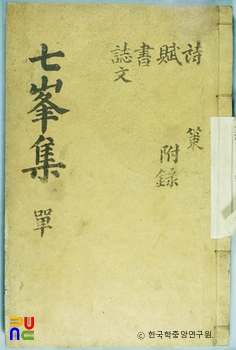 詩
賦
書
誌文
策
附錄
七峯集 單
PUNC
© 한국학중앙연구원